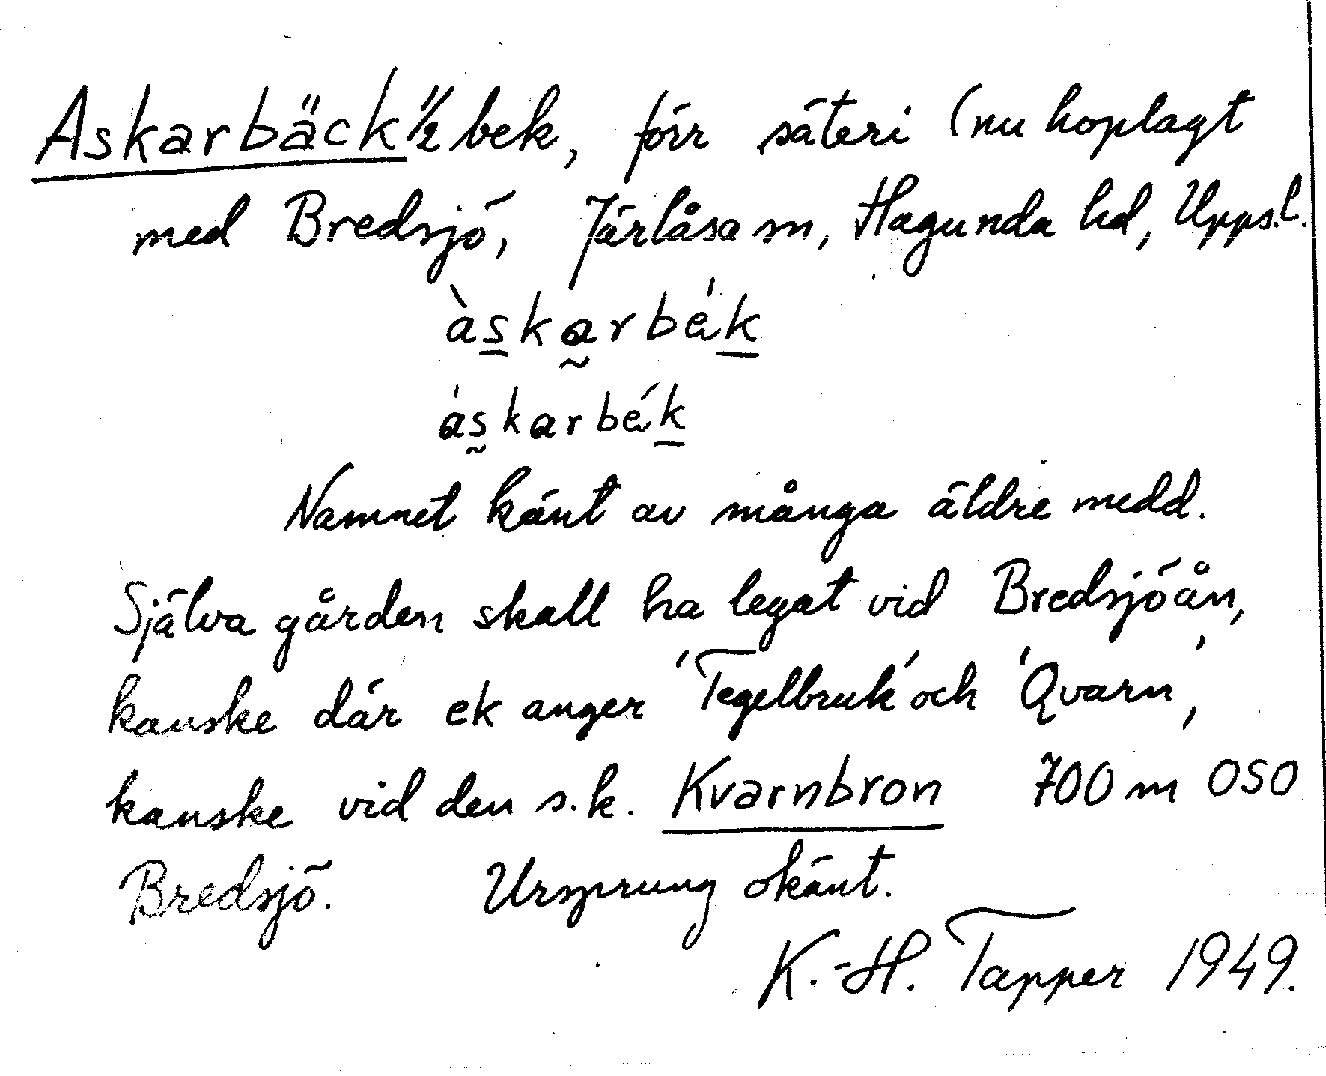 Askarbäck ½ bek, förr säteri (nu hoplagt
med Bredsjö, Järlåsa sn, Hagunda hd, Upps.l.
àskarbék
áskarbék
Namnet känt av många äldre medd.
Själva gården skall ha legat vid Bredsjöån,
kanske där ek anger 'Tegelbruk' och 'Qvarn',
kanske vid den s.k. Kvarnbron 700 m OSO
Bredsjö. Ursprung okänt.
K.-H. Tapper 1949.